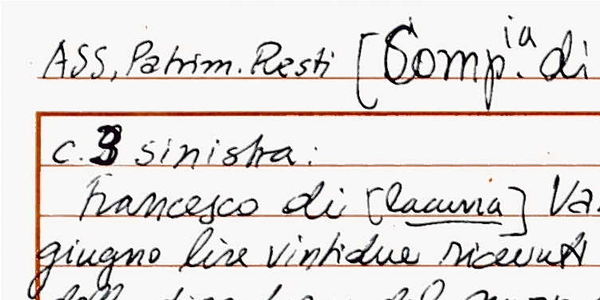 ASS, Patrim. Resti [Comp.ia di
c. 3 sinistra:
Francesco di [lacuna] Va
giugno lire vintidue ricevuti